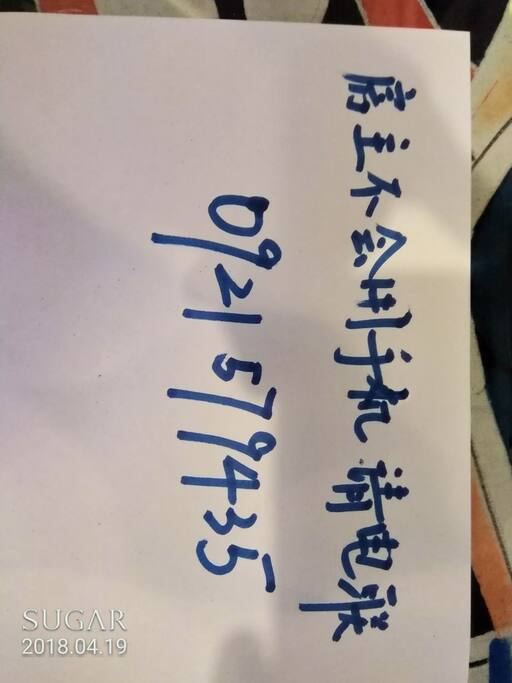 店主不会用手机请电联
0921579435
SUGAR
2018.04.19